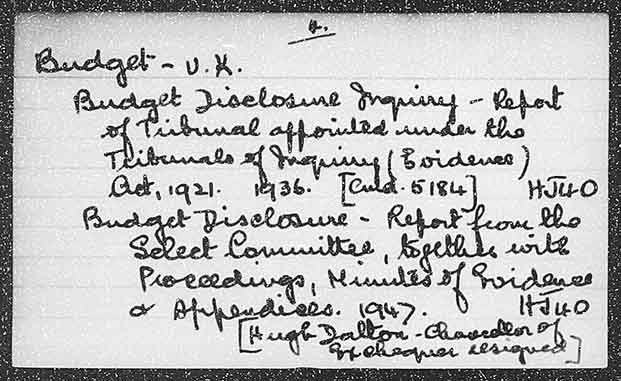 4.
Budget - U.K.
Budget Disclosure Inquiry - Report
of Tribunal appointed under the
Tribunals of Inquiry (Evidence)
Act, 1921. 1936. [Cmd. 5184] HJ40
Budget Disclosure - Report from the
Select Committee, together with
Proceedings, Minutes of Evidence
& Appendices. 1947. HJ40
[Hugh Dalton - Chancellor of
Exchequer resigned]